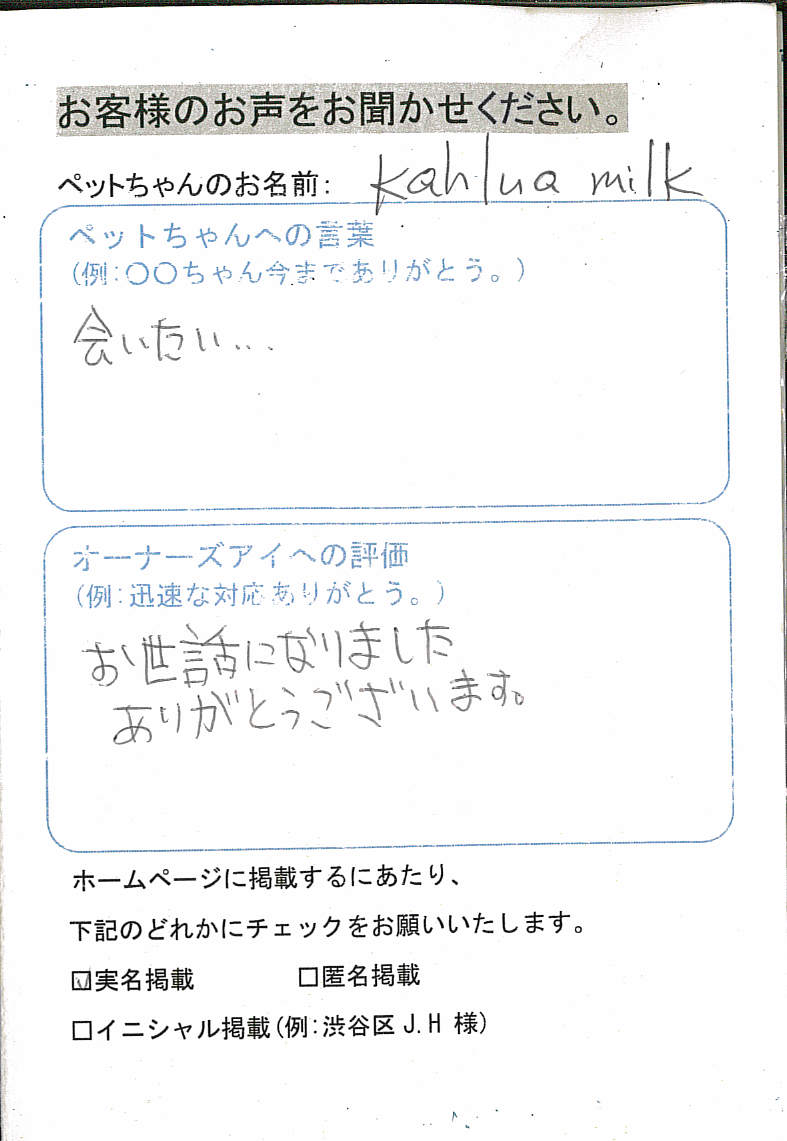 お客様のお声をお聞かせください。
ペットちゃんのお名前: kahlua milk
ペットちゃんへの言葉
(例:〇〇ちゃん今までありがとう。)
会いたい...
オーナーズアイへの評価
(例:迅速な対応ありがとう。)
お世話になりました
ありがとうございます。
ホームページに掲載するにあたり、
下記のどれかにチェックをお願いいたします。
☑実名掲載 □匿名掲載
□イニシャル掲載(例:渋谷区 J.H 様)